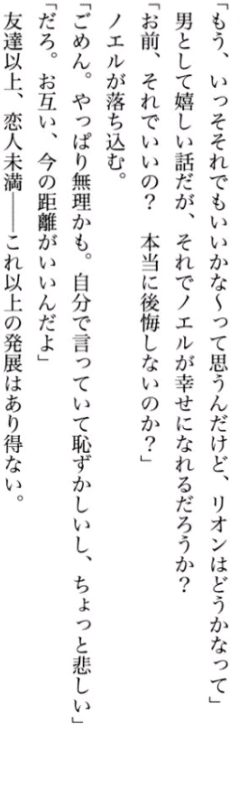 「もう、いっそそれでもいいかな～って思うんだけど、リオンはどうかなって」
男として嬉しい話だが、それでノエルが幸せになれるだろうか？
「お前、それでいいの？　本当に後悔しないのか？」
ノエルが落ち込む。
「ごめん。やっぱり無理かも。自分で言っていて恥ずかしいし、ちょっと悲しい」
「だろ。お互い、今の距離がいいんだよ」
友達以上、恋人未満――これ以上の発展はあり得ない。